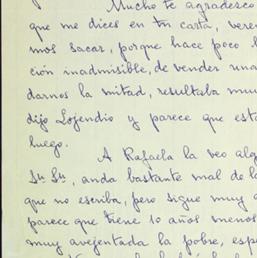 Mucho te agradesco
que me dices en tu carta, vere
mos sacar, porque hace poco
ción inadmisible, de vender una
darnos la mitad, resultaba mu
dijo Lojendio y parece que est
luego.
A Rafaela la veo alg
Su Su, anda bastante mal de l
que no escriba, pero sigue muy
parece que tiene 10 años menos
muy avejentada la pobre, esp